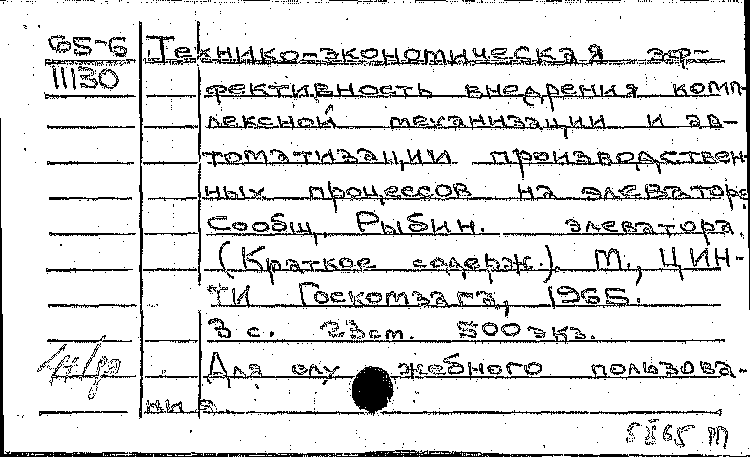 65-6 Технико-экономическая эф-
11130 фективность внедрения комп-
лексной механизации и ав-
томатизации производствен-
ных процессов на элеваторе
Сообщ. Рыбин. элеватора.
(Краткое содерж.). М., ЦИН-
ТИ Госкомзага, 1965.
3 с. 23см. 500 экз.
Для служебного пользова-
ния.
65 м